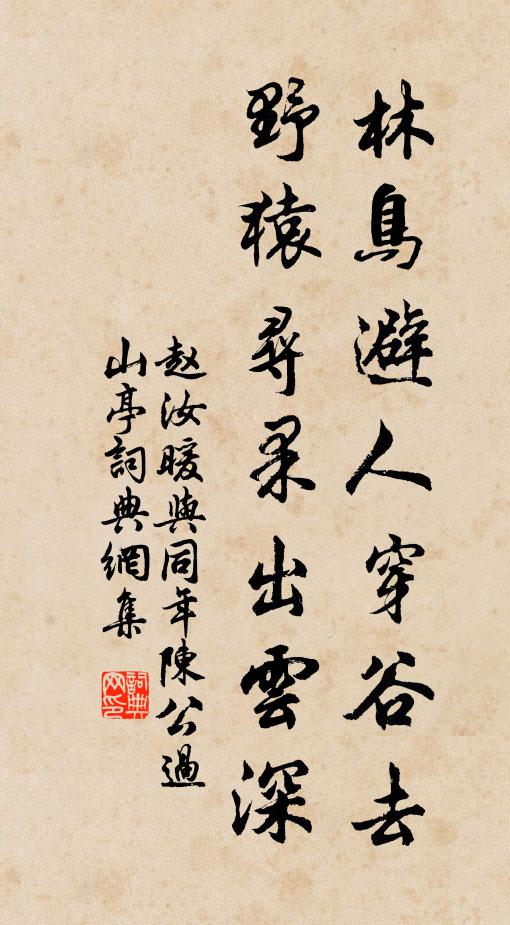 林鳥避人穿谷去
野猿尋果出雲深
赵汝暖與同年陳公過
山亭詞典網集
詞典
网印